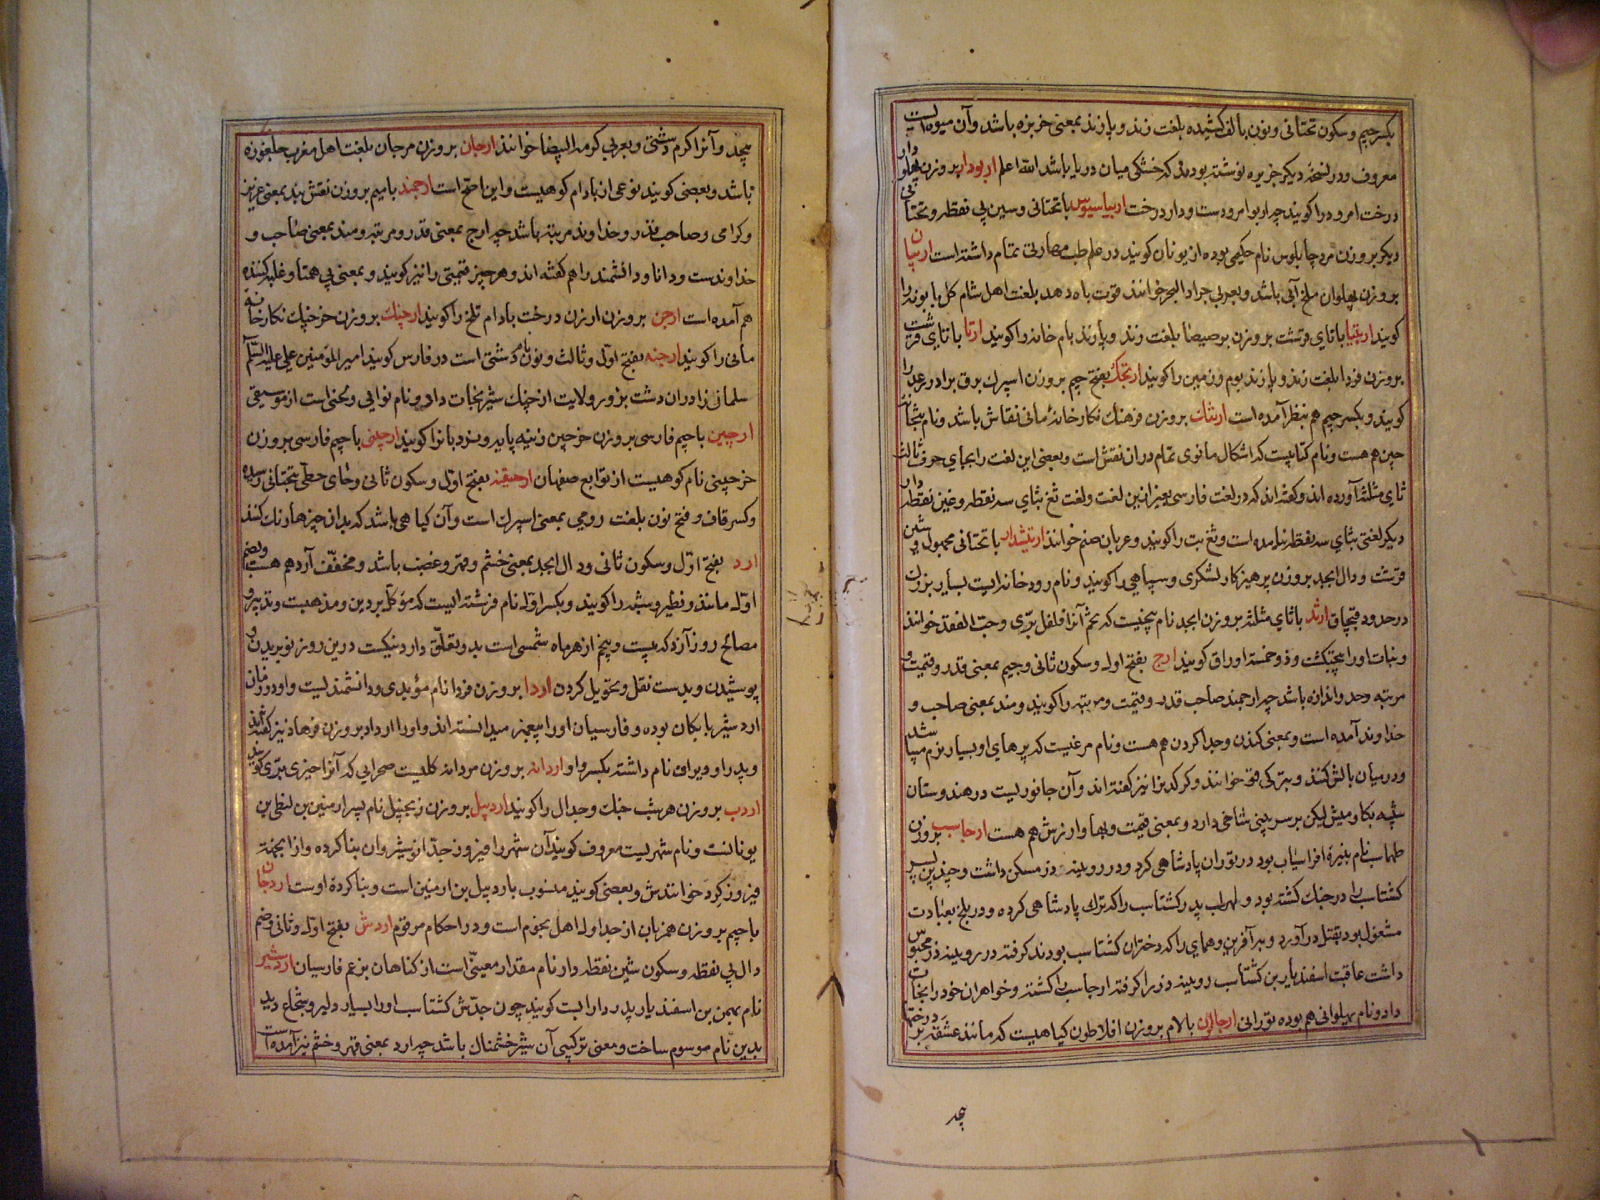 بکسر جیم و سکون تحتانی و نون بالف کشیده بلغت زند و پازند بمعنی خربزه باشد و آن میوه ایست
معروف و در نسخه دیکر جزیره نوشته بودند که خشکی میان دریا باشد الله اعلم اربودار بروزن پهلودار
درخت امرود را کویند چه اربو امرودست و دار درخت اربیاسیوس با تحتانی و سین بی نقطه و تحتانی
دیکر بروزن مرد چابلوس نام حکیمی بوده از یونان کویند در علم طب مهارتی تمام داشته است اربیان
بروزن پهلوان ملخ آبی باشد و بعربی جراد البحر خوانند قوت باه دهد بلغت اهل شام کل بابونه را
کویند اربیتیا با تای قرشت بروزن برصیصا بلغت زند و پازند بام خانه را کویند ارتا با تای قرشت
بروزن فردا بلغت زند و پازند بوم و زمین را کویند ارتجک بفتح جیم بروزن اسپرک برق برادر رعد را
کویند و بکسر جیم هم بنظر آمده است ارتنک بروزن فرهنک نکارخانه مانی نقاش باشد و نام بتخانه
چین هم هست و نام کتابیست که اشکال مانوی تمام در ان نقش است و بعضی این لغت را بجای حرف ثالث
ثای مثلثه آورده اند و کفته اند که در لغت فارسی بغیر ازین لغت و لغت ثغ بثای سه نقطه و غین نقطه دار
دیکر لغتی بثای سه نقطه نیامده است و ثغ بت را کویند و عربان صنم خوانند ارتیشدار با تحتانی مجهول و شین
قرشت و دال ابجد بروزن پرهیزکار لشکری و سپاهی را کویند و نام رودخانه ایست بسیار بزرک
در حدود قبچاق ارثد با ثای مثلثه بروزن ابجد نام بیخیست که تخم آنرا فلفل برّی و حبّ الفقد خوانند
و نبات اورا پنجنکشت و ذو خمسة اوراق کویند ارج بفتح اوله و سکون ثانی و جیم بمعنی قدر و قیمت و
مرتبه و حد و اندازه باشد چه ارجمند صاحب قدر و قیمت و مرتبه را کویند و مند بمعنی صاحب و
خداوند آمده است و بمعنی کندن و جدا کردن هم هست و نام مرغیست که پرهای او بسیار نرم میباشد
و در میان بالش کنند و بترکی قو خوانند و کرکدن را نیز کفته اند و آن جانوریست در هندوستان
شبیه بکاومیش لیکن بر سر بینی شاخی دارد و بمعنی قیمت و بها و ارزش هم هست ارجاسب بروزن
طهماسب نام نبیره افراسیاب بود در توران پادشاهی کرد و در رویینه دز مسکن داشت و چندین پسر
کشتاسب را در جنک کشته بود و لهراسب پدر کشتاسب را که ترک پادشاهی کرده و در بلخ بعبادت
مشغول بود بقتل در آورد و به آفرین و همای را که دختران کشتاسب بودند کرفته در رویینه دز محبوس
داشت عاقبت اسفندیار بن کشتاسب رویینه دز را کرفته ارجاسب را کشته و خواهران خود را نجات
داد و نام پهلوانی هم بوده تورانی ارجالون بالام بروزن افلاطون کیاهیست که مانند عشقه بر درختها
پیچد
پیچد و آنرا کرم دشتی و بعربی کرمة البیضا خوانند ارجان بروزن مرجان بلغت اهل مغرب چلغوزه
باشد و بعضی کویند نوعی از بادام کوهیست و این اصح است ارجمند بامیم بروزن نقش بند بمعنی عزیز
و کرامی و صاحب قدر و خداوند مرتبه باشد چه ارج بمعنی قدر و مرتبه و مند بمعنی صاحب و
خداوندست و دانا و دانشمند را هم کفته اند و هر چیز قیمتی را نیز کویند و بمعنی بی همتا و غلبه کننده
هم آمده است ارجن بروزن ارزن درخت بادام تلخ را کویند ارجنک بروزن خرچنک نکارخانه
مانی را کویند ارجنه بفتح اوّل و ثالث و نون نام دشتی است در فارس کویند امیر المؤمنین علی علیه السّلم
سلمان را در ان دشت بزور ولایت از چنک شیر نجات داد و نام نوایی و لحنی است از موسیقی
ارچین با جیم فارسی بروزن خرچین زینه پایه و نردبان را کویند ارچینی با جیم فارسی بروزن
خرچینی نام کوهیست از توابع صفهان ارحیقنه بفتح اوّل و سکون ثانی و حای حطّی بتحتانی رسیده
و کسر قاف و فتح نون بلغت رومی بمعنی اسپرک است و آن کیاهی باشد که بدان چیزها رنک کنند
ارد بفتح اوّل و سکون ثانی و دال ابجد بمعنی خشم و قهر و غضب باشد و مخفّف آرد هم هست و بضم
اوّله مانند و نظیر و شبه را کویند و بکسر اوّله نام فرشته ایست که موکّل بر دین و مذهبست و تدبیر و
مصالح روز آرد که بیست و پنجم از هر ماه شمسی است بدو تعلّق دارد نیکست درین روز نو بریدن و
پوشیدن و بدست نقل و تحویل کردن اردا بروزن فردا نام مؤبدی و دانشمندیست و او در زمان
اردشیر بابکان بوده و فارسیان اورا پیغمبر میدانسته اند و اورا ارداد بروزن فرهاد نیز کفته اند
و پدر او ویراف نام داشته بکسر واو اردانه بروزن مردانه کلیست صحرایی که آنرا خیری برّی کویند
اردب بروزن هرشب جنک و جدال را کویند اردبیل بروزن زنجبیل نام پسر ارمنین بن لنطی بن
یونانست و نام شهریست معروف کویند آن شهر را فیروز جدّ انوشیروان بنا کرده و از اینجهته
فیروزکرد خوانندش و بعضی کویند منسوب باردبیل بن ارمنین است و بنا کرده اوست اردجان
با جیم بروزن همزبان از جداول اهل نجوم است و در احکام مرقوم اردش بفتح اوله و ثانی و ضم
دال بی نقطه و سکون شین نقطه دار نام مقدار معیّنی است از کناهان بزعم فارسیان اردشیر
نام بهمن بن اسفندیار پدر دارابست کویند چون جدّش کشتاسب اورا بسیار دلیر و شجاع دید
بدین نام موسوم ساخت و معنی ترکیبی آن شیر خشمناک باشد چه ارد بمعنی قهر و خشم نیز آمده است